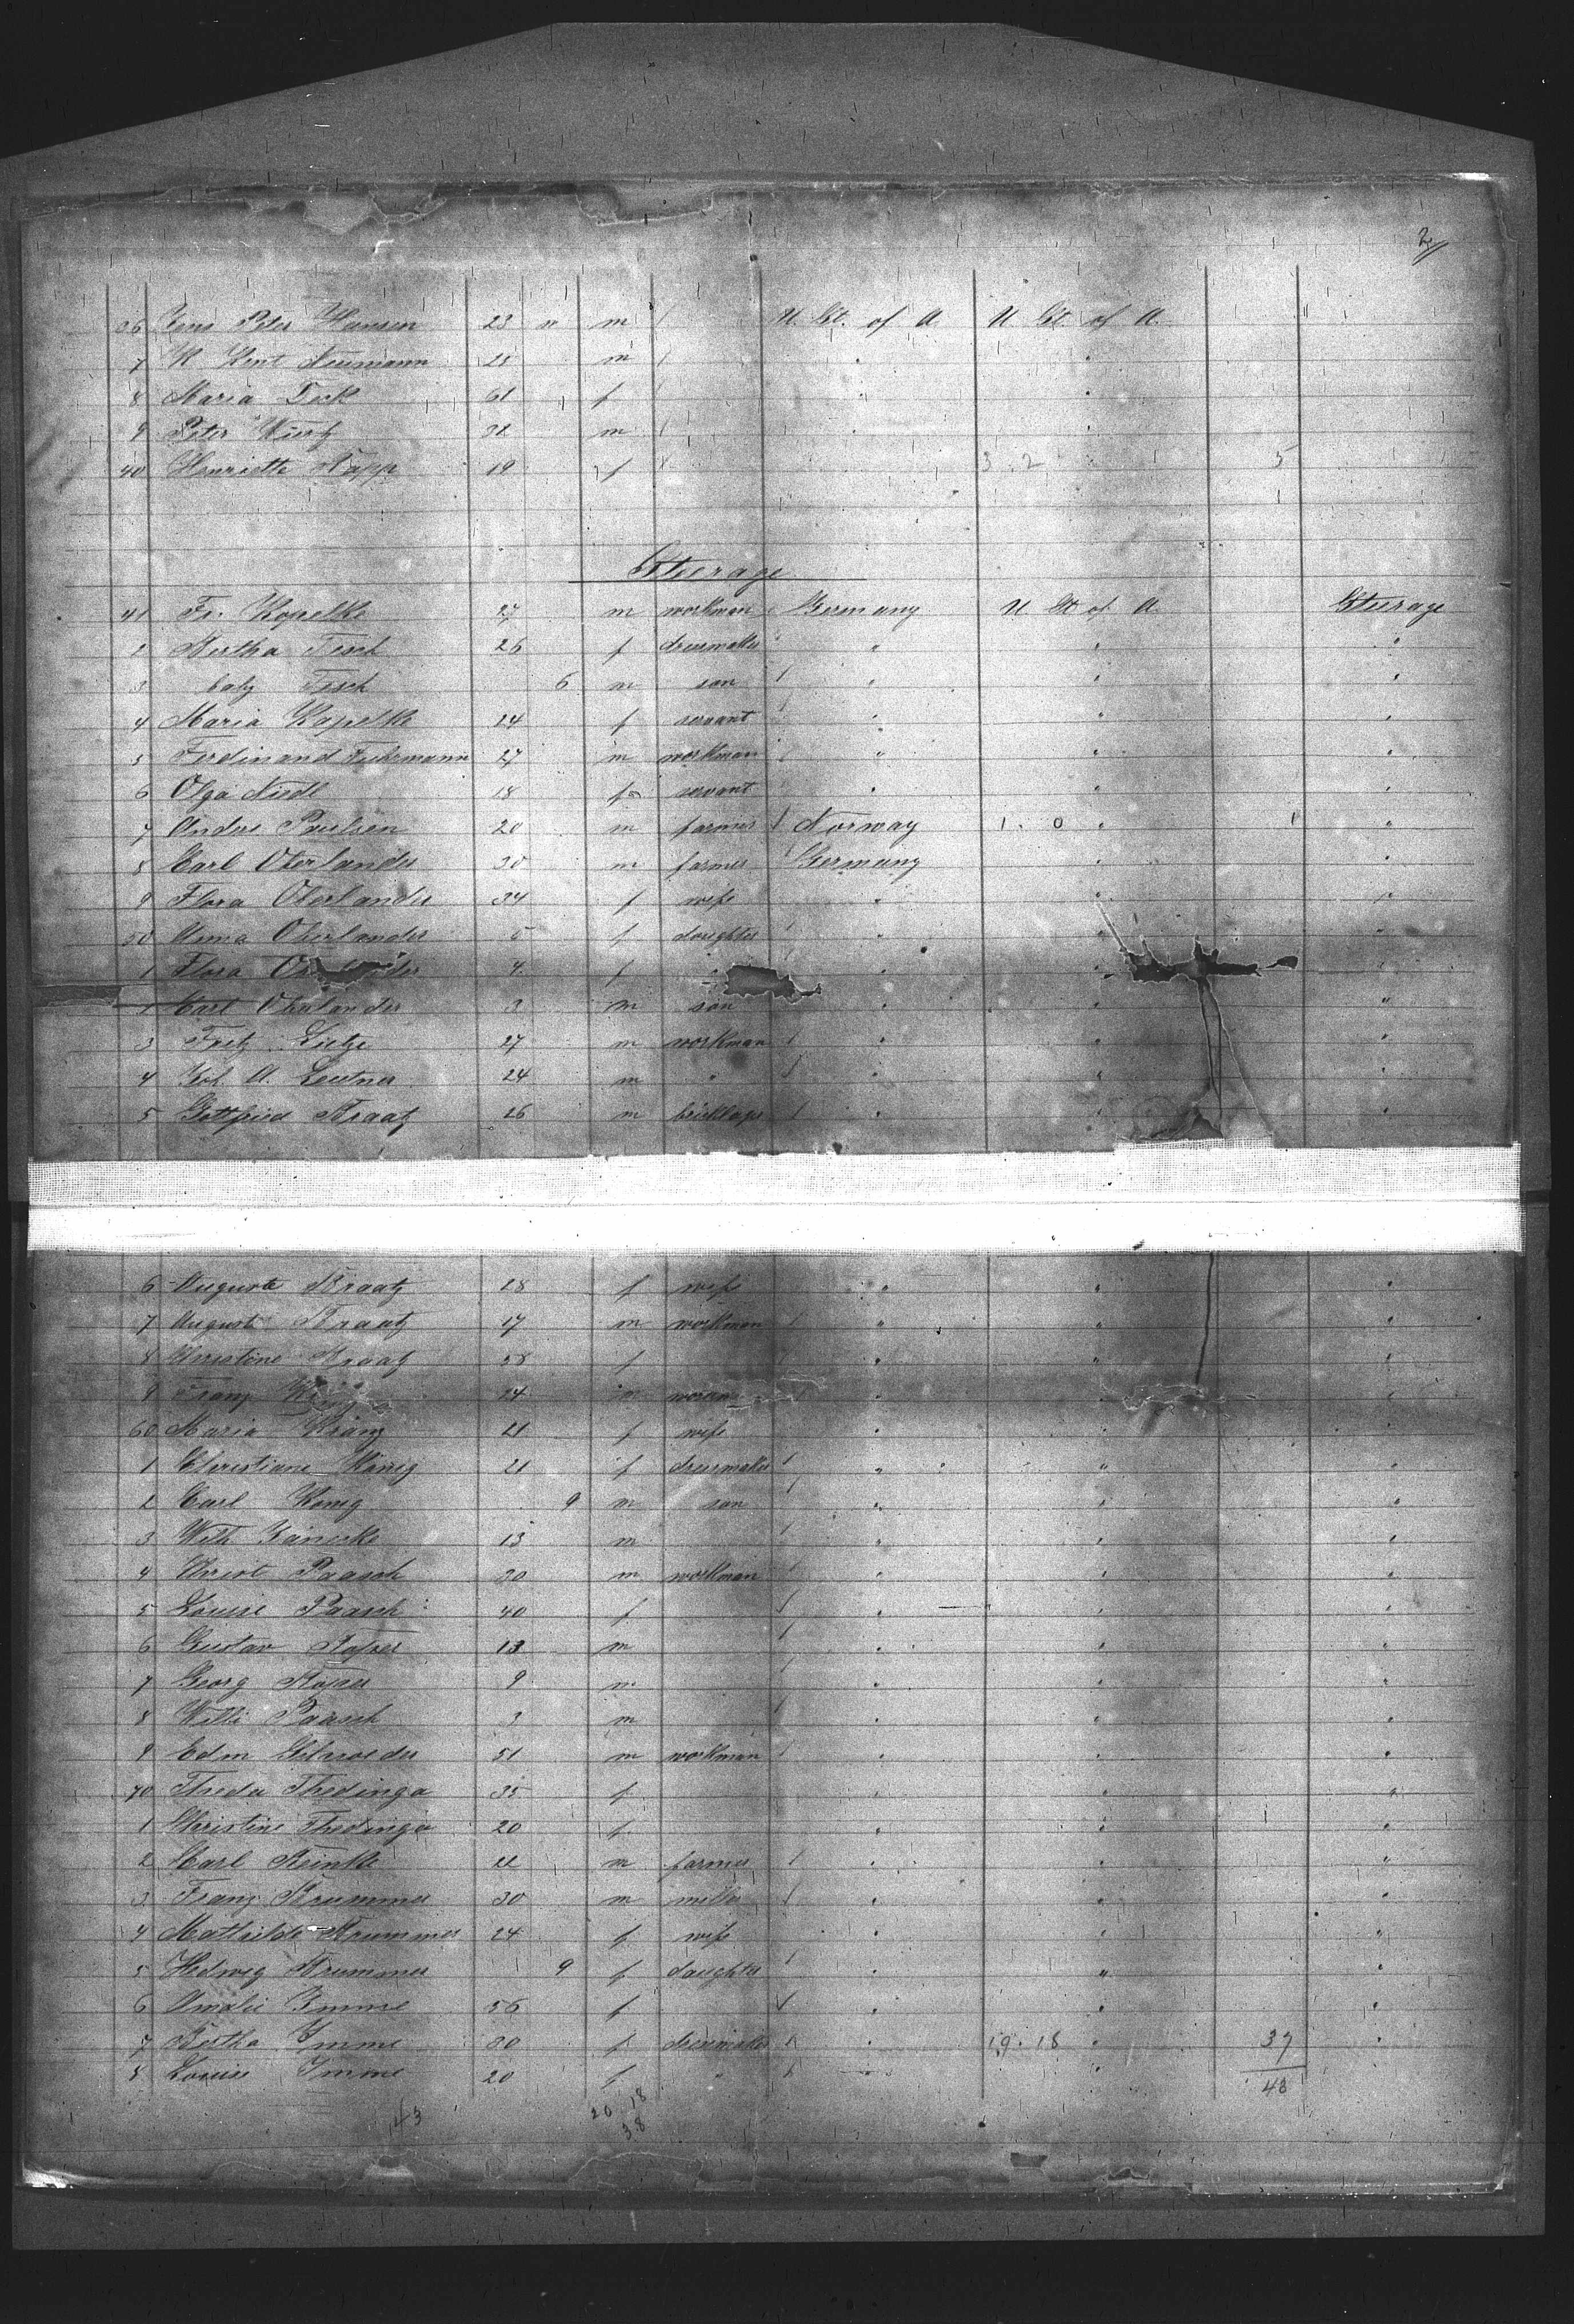 2
36 Jens Peter Hansen 23 " m U. St. of A. U. St. of A.
7 Neumann 21 m " "
8 Maria 61 f " "
9 Peter 32 m " "
40 Henriette 19 f 3. 2 " 5
Steerage
41 Fr. Kopelke 27 m workman Germany U. St. of A. Steerage
2 Bertha Tesch 26 f dressmaker " " "
3 baby Tesch 6 m son " " "
4 Maria Kapelke 24 f servant " " "
5 Ferdinand Fuhrmann 27 m workman " " "
6 Olga 18 f servant " " "
7 Paulsen 20 m farmer Norway 1. 0 " 1 "
8 Carl Oberlander 30 m farmer Germany " "
9 Flora Oberlander 34 f wife " " "
50 Anna Oberlander 5 f daughter " " "
1 Flora 4 f " " "
Carl Oberlander 3 m son " " "
3 Fritz 27 m workman " " "
4 Joh. A. Leutner 24 m " " " "
5 Gottfried Braatz 26 m " " "
6 Auguste Braatz 28 f wife " " "
7 August Braatz 17 m workman " " "
8 Christine Braatz 58 f " " "
9 Franz 24 m " " "
60 Maria 21 f wife " " "
1 Christiane König 21 f dressmaker " " "
2 Carl König 9 m son " " "
3 Wilh. Jänecke 13 m " "
4 Christ Paasch 30 m workman " " "
5 Louise Paasch 40 f " " "
6 Gustav 13 m " " "
7 Georg 9 m " " "
8 Willi Paasch 3 m " " "
9 Edm Schroeder 51 m workman " " "
70 Theda Thedinga 35 f " " "
1 Christine Thedinga 20 f " " "
2 Carl Steinke 22 m farmer " " "
3 Franz Brummer 30 m miller " " "
4 Mathilde Brummer 24 f wife " " "
5 Hedwig Brummer 9 f daughter " " "
6 Amalie Imme 56 f " " "
7 Bertha Imme 30 f dressmaker " 19. 18 " 37 "
8 Louise Imme 20 f " " "
48
43 20 18
38